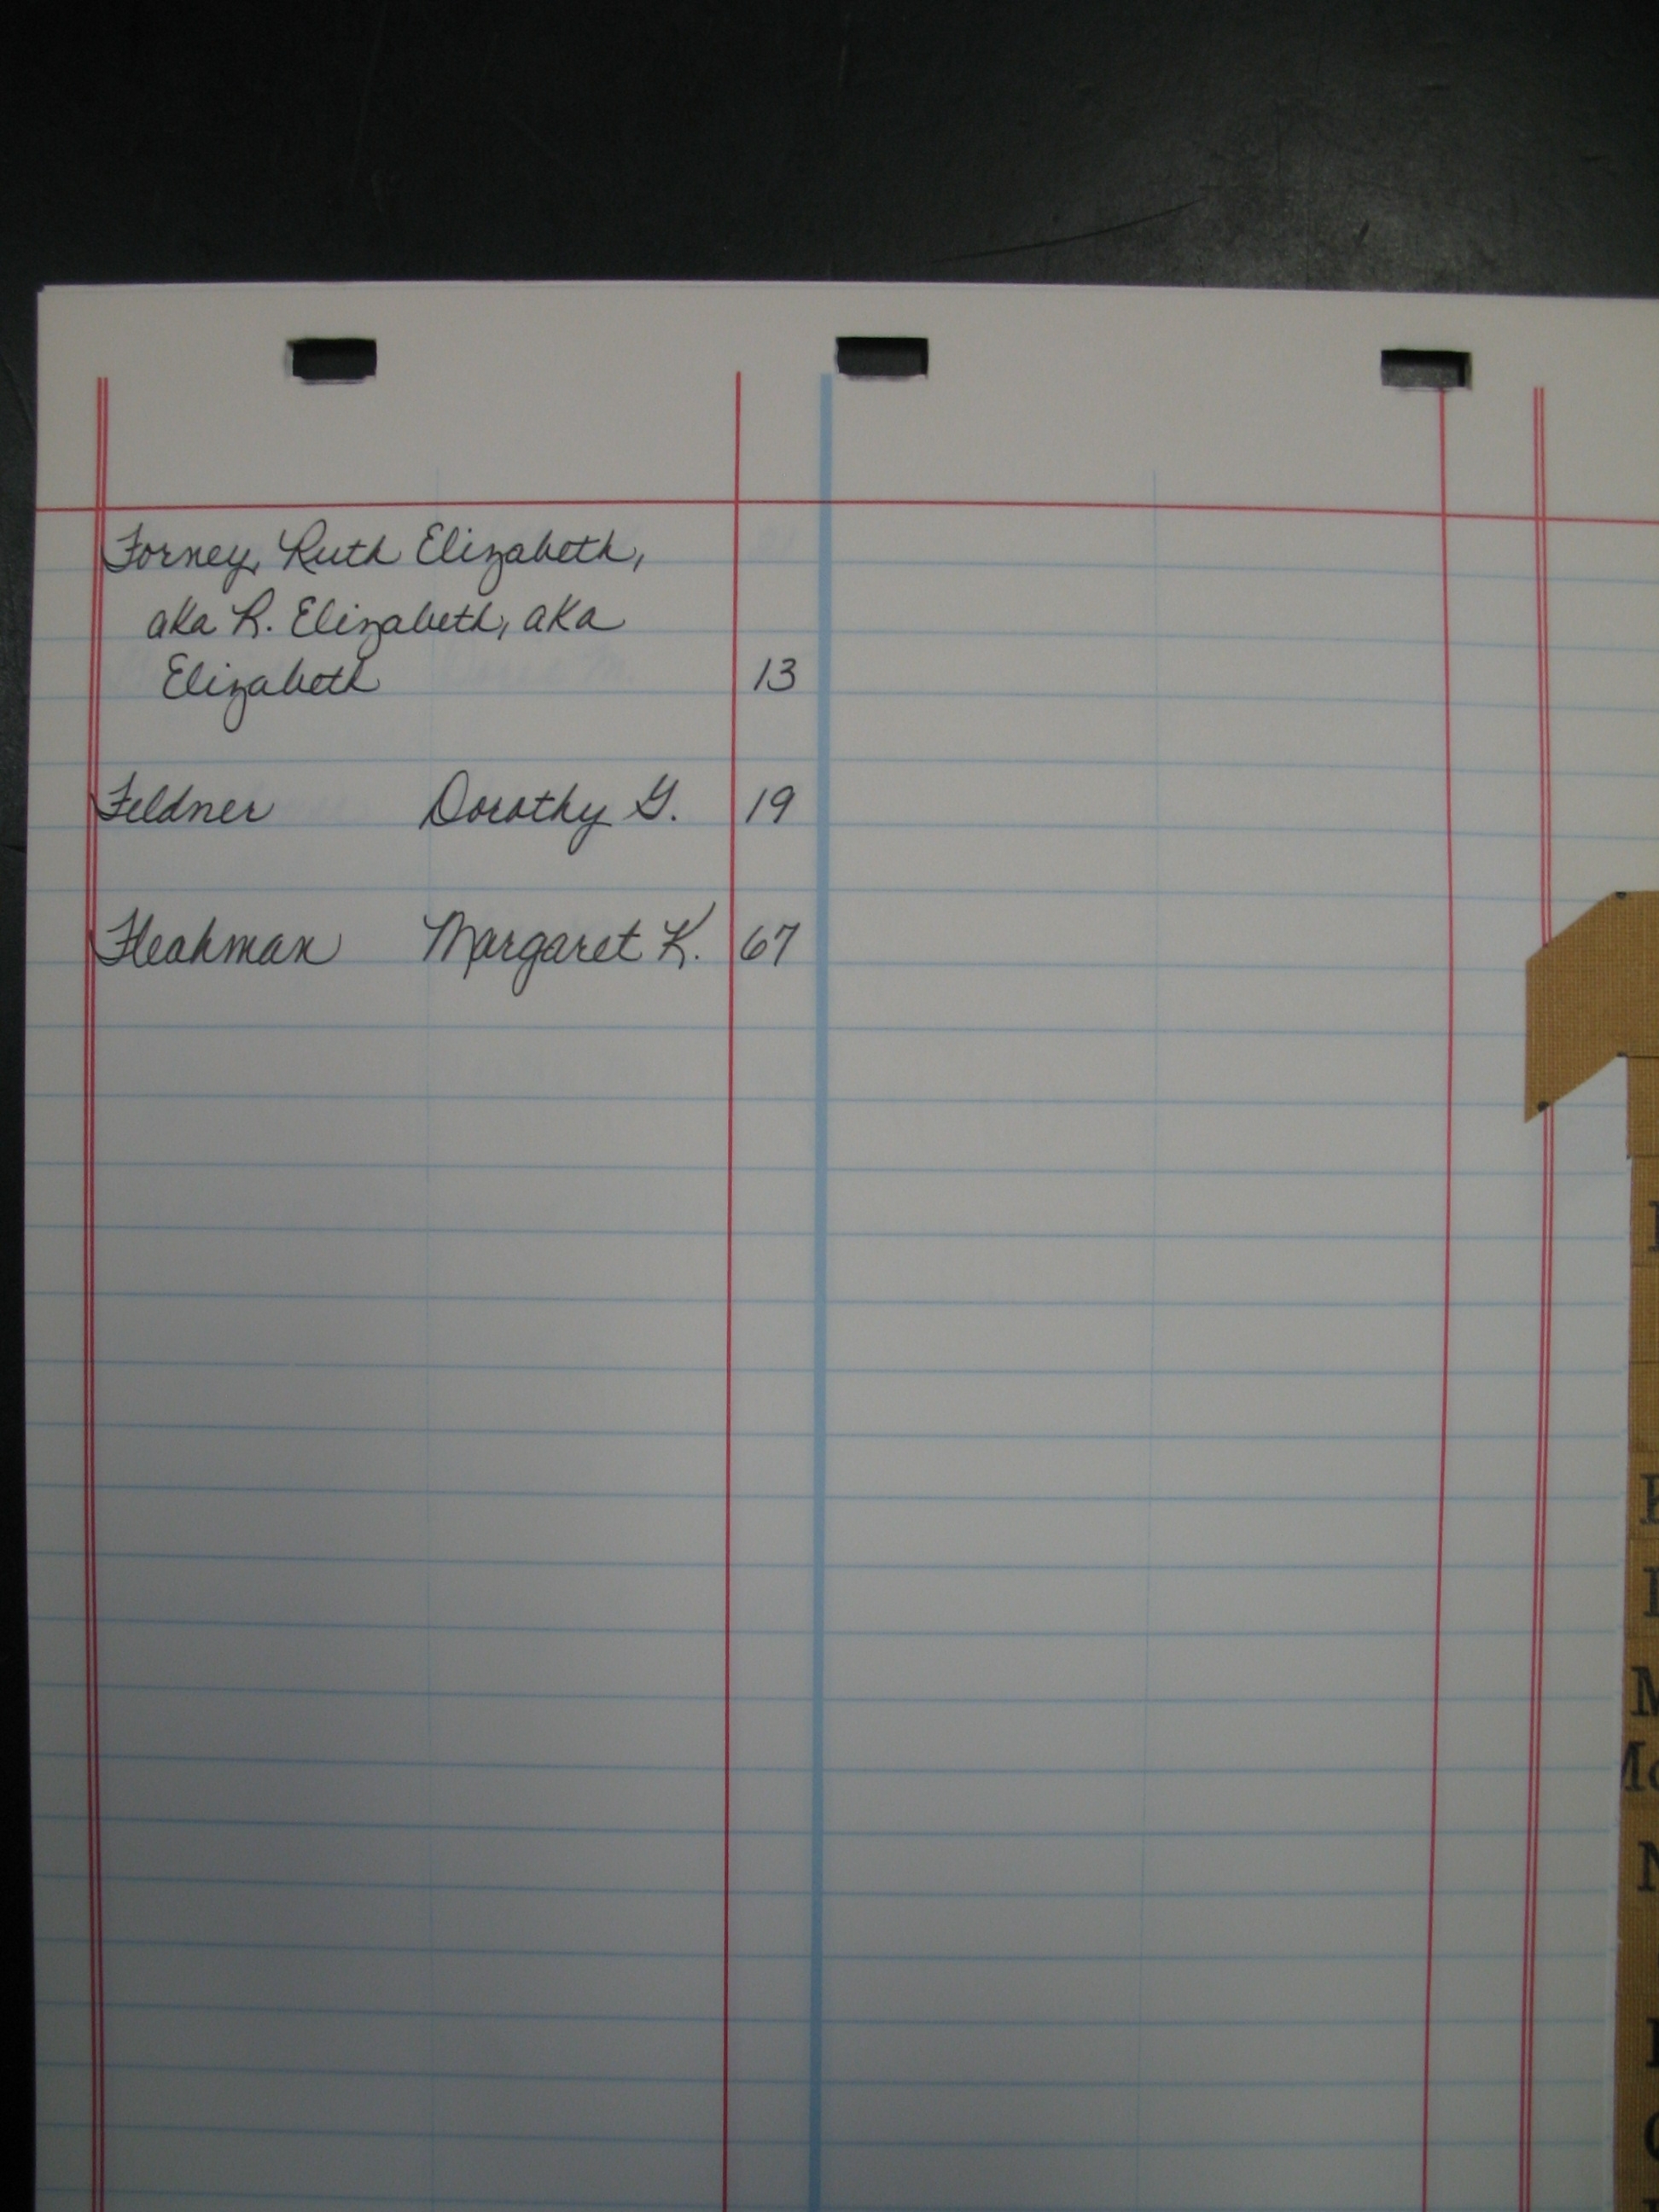 Forney, Ruth Elizabeth,
aka R. Elizabeth, aka
Elizabeth 13
Feldner Dorothy G. 19
Fleahman Margaret K. 67